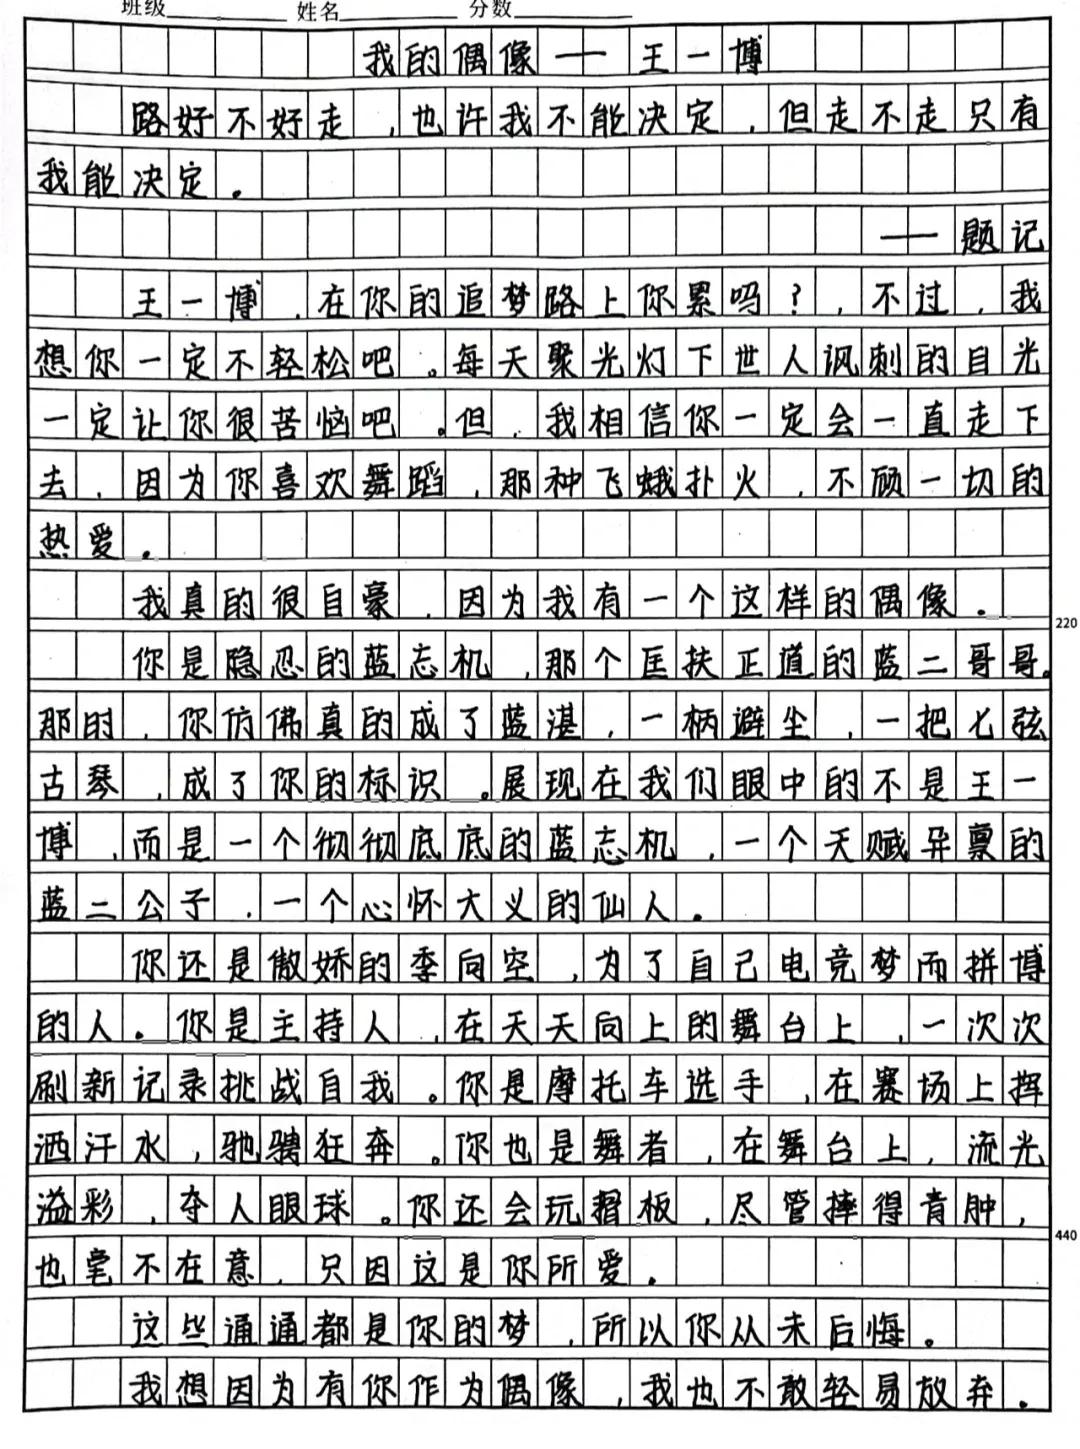 班级 姓名 分数
我的偶像——王一博
路好不好走,也许我不能决定,但走不走只有
我能决定。
——题记
王一博,在你的追梦路上你累吗?,不过,我
想你一定不轻松吧。每天聚光灯下世人讽刺的目光
一定让你很苦恼吧。但,我相信你一定会一直走下
去,因为你喜欢舞蹈,那种飞蛾扑火,不顾一切的
热爱。
我真的很自豪,因为我有一个这样的偶像。
220
你是隐忍的蓝忘机,那个匡扶正道的蓝二哥哥。
那时,你仿佛真的成了蓝湛,一柄避尘,一把七弦
古琴,成了你的标识。展现在我们眼中的不是王一
博,而是一个彻彻底底的蓝忘机,一个天赋异禀的
蓝二公子,一个心怀大义的仙人。
你还是傲娇的季向空,为了自己电竞梦而拼博
的人。你是主持人,在天天向上的舞台上,一次次
刷新记录挑战自我。你是摩托车选手,在赛场上挥
洒汗水,驰骋狂奔。你也是舞者,在舞台上,流光
溢彩,夺人眼球。你还会玩滑板,尽管摔得青肿,
440
也毫不在意,只因这是你所爱。
这些通通都是你的梦,所以你从未后悔。
我想因为有你作为偶像,我也不敢轻易放弃。